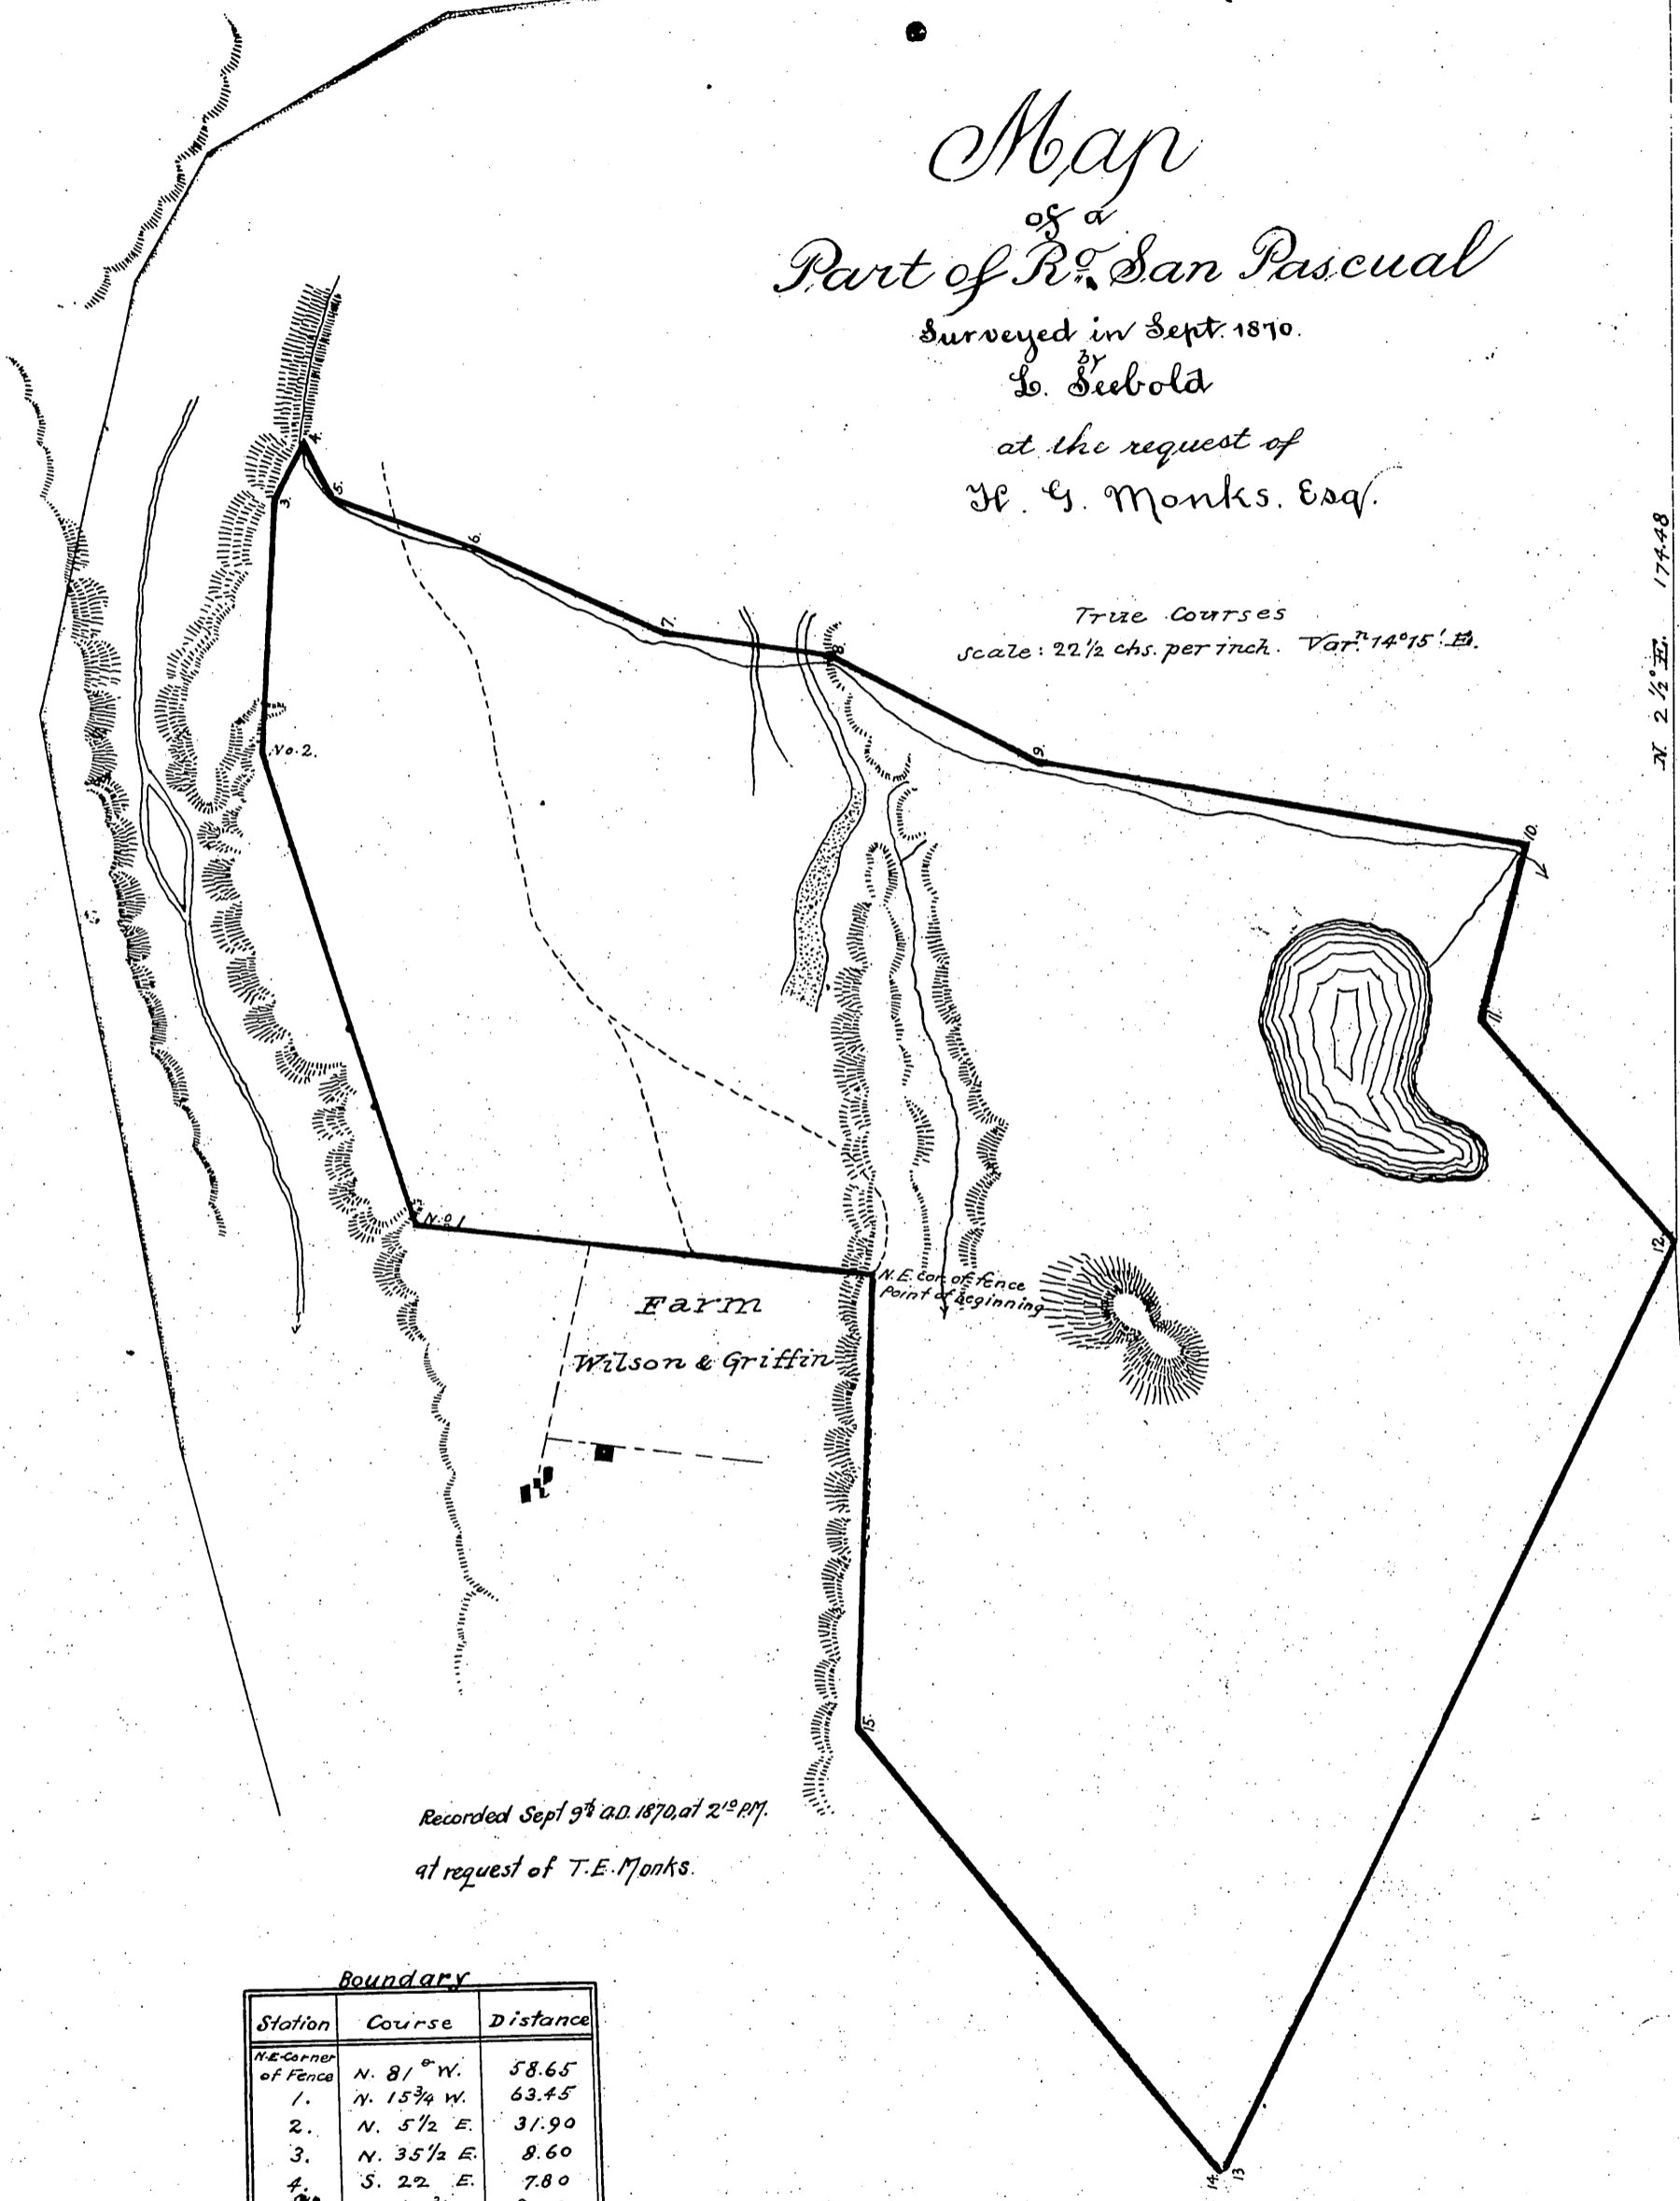 Map
of a
Part of Rº. San Pascual
Surveyed in Sept. 1870.
by
L. Seebold
at the request of
H. G. Monks. Esq.
True Courses
scale: 22½ chs. per inch. Varⁿ. 14°15' E.
N. 2½° E. 174.48
4.
3.
5.
6.
7.
8.
No. 2.
9.
10.
11
12.
N.º 1
N.E. cor. of fence
Point of beginning
Farm
Wilson & Griffin
15.
Recorded Sept 9th A.D. 1870, at 2¹⁰ P.M.
at request of T.E. Monks.
14.
13
Boundary
Station Course Distance
N.E. Corner
of Fence N. 81° W. 58.65
1. N. 15¾ W. 63.45
2. N. 5½ E. 31.90
3. N. 35½ E. 8.60
4. S. 22 E. 7.80